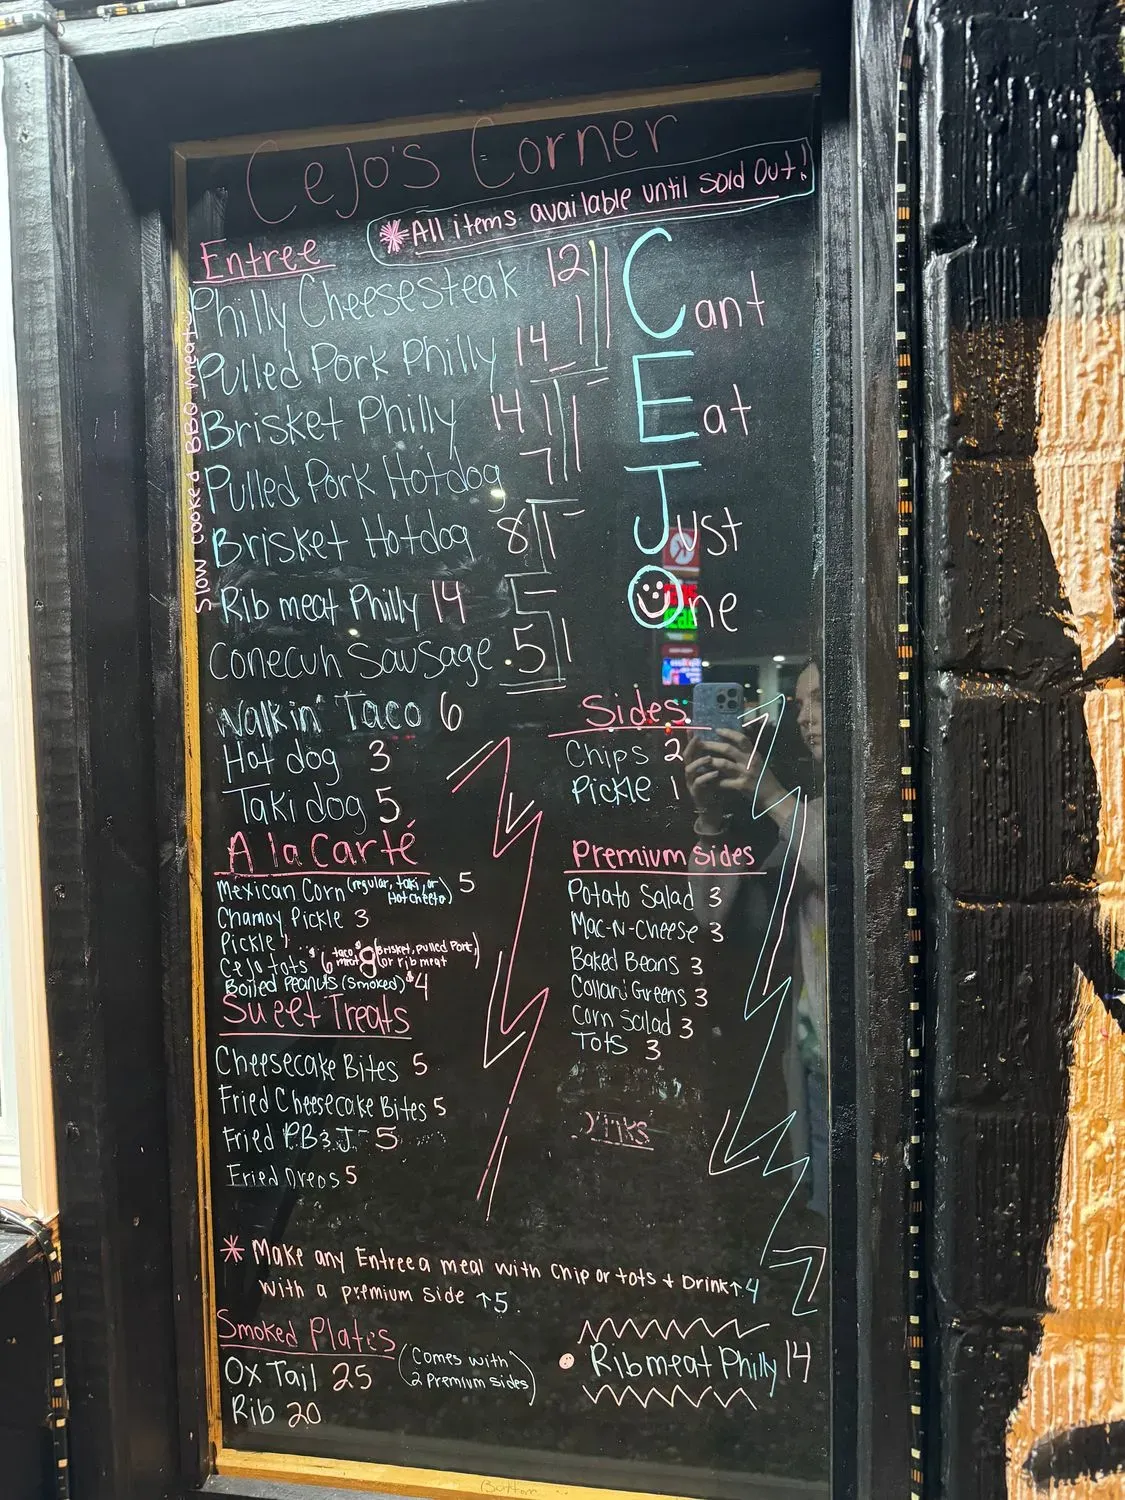 CeJo's Corner
*All items available until Sold Out!
Entree
Philly Cheesesteak 12
Pulled Pork Philly 14
Brisket Philly 14
Pulled Pork Hotdog 7
Brisket Hotdog 8
Rib meat Philly 14
Conecuh Sausage .5
Walkin' Taco 6
Hot dog 3
Taki dog 5
Slow cooked BBQ meats
Cant
Eat
Just
One
A la Carté
Mexican Corn (regular, taki, or Hot cheeto) 5
Chamoy Pickle 3
Pickle 1
CeJo tots $6 taco meat $8 (Brisket, Pulled Pork, or rib meat
Boiled Peanuts (Smoked) $4
Sweet Treats
Cheesecake Bites 5
Fried Cheesecake Bites 5
Fried PB&J 5
Fried Oreos 5
Sides
Chips 2
Pickle 1
Premium Sides
Potato Salad 3
Mac-N-Cheese 3
Baked Beans 3
Collard Greens 3
Corn Salad 3
Tots 3
* Make any Entree a meal with Chip or tots + Drink ↑4
with a premium side ↑5.
Smoked Plates
Ox Tail 25 (Comes with 2 Premium sides)
Rib 20
Ribmeat Philly 14
Button